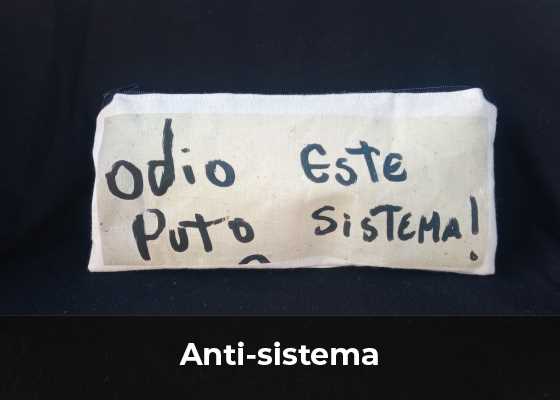 odio Este
Puto SiSTEMA!
Anti-sistema